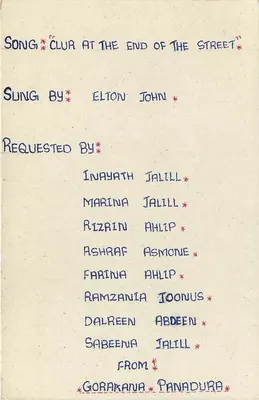 SONG: "CLUR AT THE END OF THE STREET"*
SUNG BY: ELTON JOHN *
REQUESTED BY:
INAYATH JALILL *
MARINA JALILL *
RIZRIN AHLIP *
ASHRAF ASMONE *
FARINA AHLIP *
RAMZANIA JOONUS *
DALREEN ABDEEN *
SABEENA JALILL *
FROM:
* GORAKANA * PANADURA *